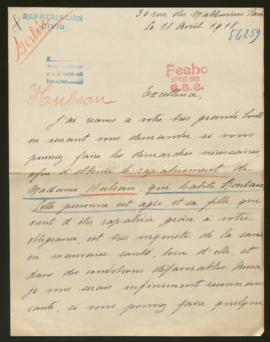 REPATRIACIÓN
CIVIL
30 rue des Mathurins Paris
le 18 Avril 1918.
56259
Fecho
Hubeau
Excellence,
J'ai recours à votre très grande bonté
en venant vous demander si vous
pouvez faire les démarches nécessaires
afin d'obtenir le rapatriement de
Madame Hubeau, qui habite Roubaix
Cette personne est agée et sa fille qui
vient d'être rapatriée grâce à votre
obligeance, est très inquiète de la savoir
en mauvaise santé, loin d'elle, et
dans des conditions défavorables. Aussi,
je vous serais infiniment reconnais-
sante, si vous pouvez faire quelque